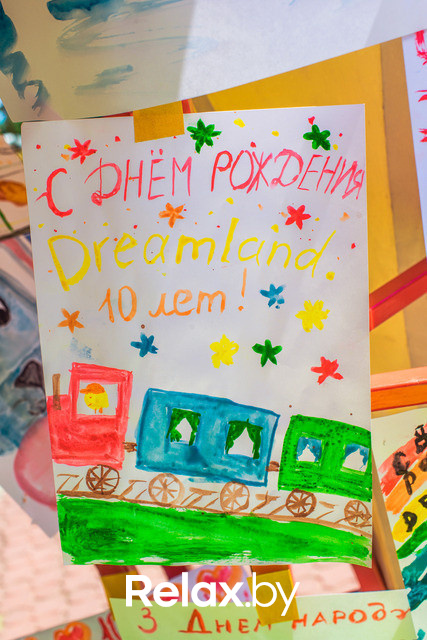 С ДНЁМ РОЖДЕНИЯ
Dreamland
10 лет!
Relax.by
З ДНЕМ НАРОДЖ